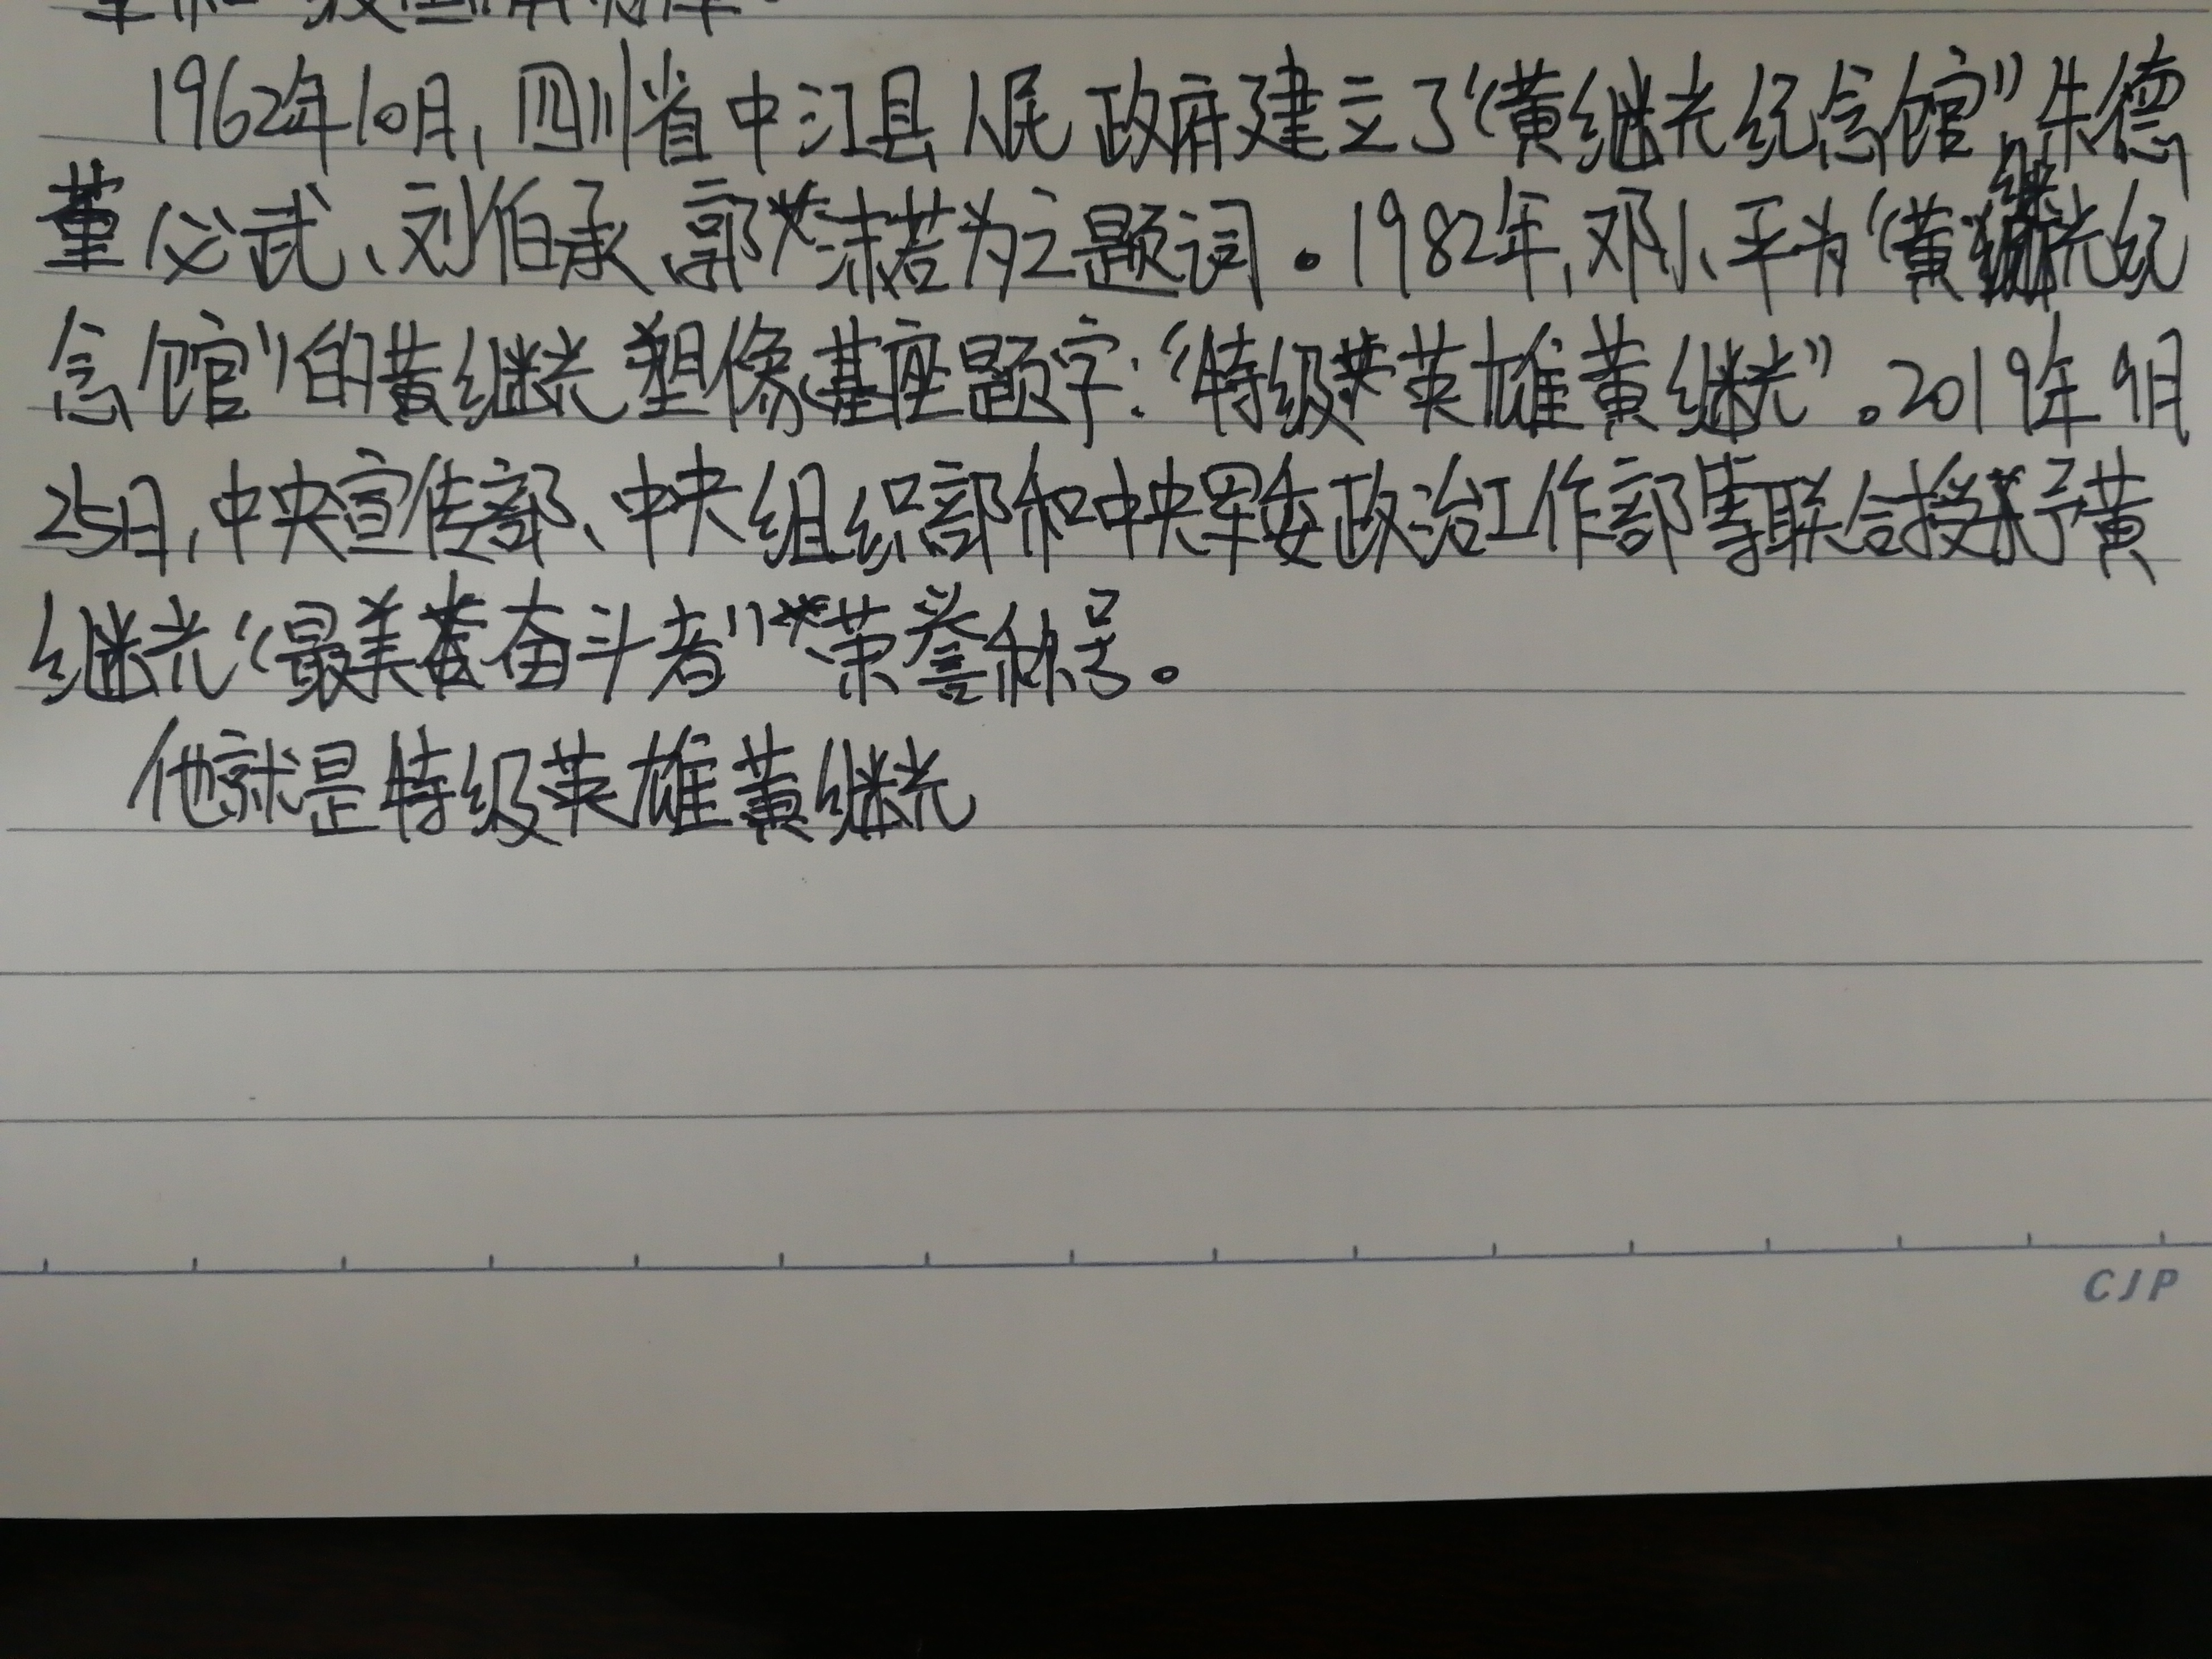 1962年10月，四川省中江县人民政府建立了“黄继光纪念馆”，朱德
董必武、刘伯承、郭沫若为之题词。1982年，邓小平为“黄继光纪
念馆”的黄继光塑像基座题字：“特级英雄黄继光”。2019年9月
25日，中央宣传部、中央组织部和中央军委政治工作部等联合授予黄
继光“最美奋斗者”荣誉称号。
他就是特级英雄黄继光
CJP